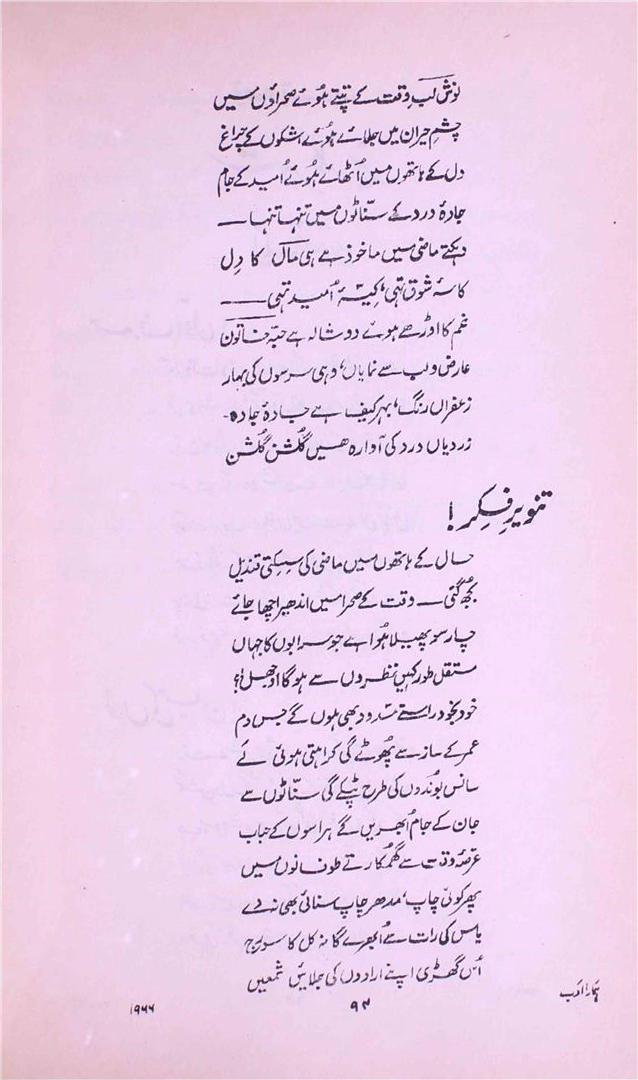 نوش لب وقت کے تپتے ہوئے صحراؤں میں
چشمِ حیران میں جلائے ہوئے اشکوں کے چراغ
دل کے ہاتھوں میں اُٹھائے ہوئے اُمید کے جام
جادۂ درد کے سنّاٹوں میں تنہا تنہا ـــ
دہکتے ماضی میں ماخوذ ہے ہی مآل کا دِل
کاسۂ شوق تہی، کیسۂ اُمید تہی ـــــ
غم کا اوڑھے ہوئے دوشالہ ہے حبّہ خاتون
عارض و لب سے نمایاں، وہی سرسوں کی بہار
زعفراں رنگ، بہر کیف ہے جادۂ جادہ۔
زردیاں درد کی آوارہ ھیں گلُشن گلُشن
تنویرِ فِکر!
حال کے ہاتھوں میں ماضی کی سِسکتی قندیل
بُجھ گئی ــ وقت کے صحرا میں اندھیرا چھا جائے
چار سو پھیلا ہُوا ہے جو سرابوں کا جہاں
مستقل طور کہیں نظروں سے ہو گا اوجھل!؟
خود بخود راستے مسدود بھی ہوں گے جس دم
عمر کے ساز سے پھُوٹے گی کراہتی ہوئی لَے
سانس بوُندوں کی طرح ٹپکے گی سنّاٹوں سے
جان کے جام اُبھریں گے ہراسوں کے حباب
عرصۂ وقت سے گھمُکارتے طوفانوں میں
پھر کوئی چاپ، مدھر چاپ سنائی بھی نہ دے
یاس کی رات سے اُبھرے گا نہ کل کا سورج
اُس گھڑی اپنے ارادوں کی جلائیں شمعیں
ہمارا ادب
۹۴
۱۹۶۶